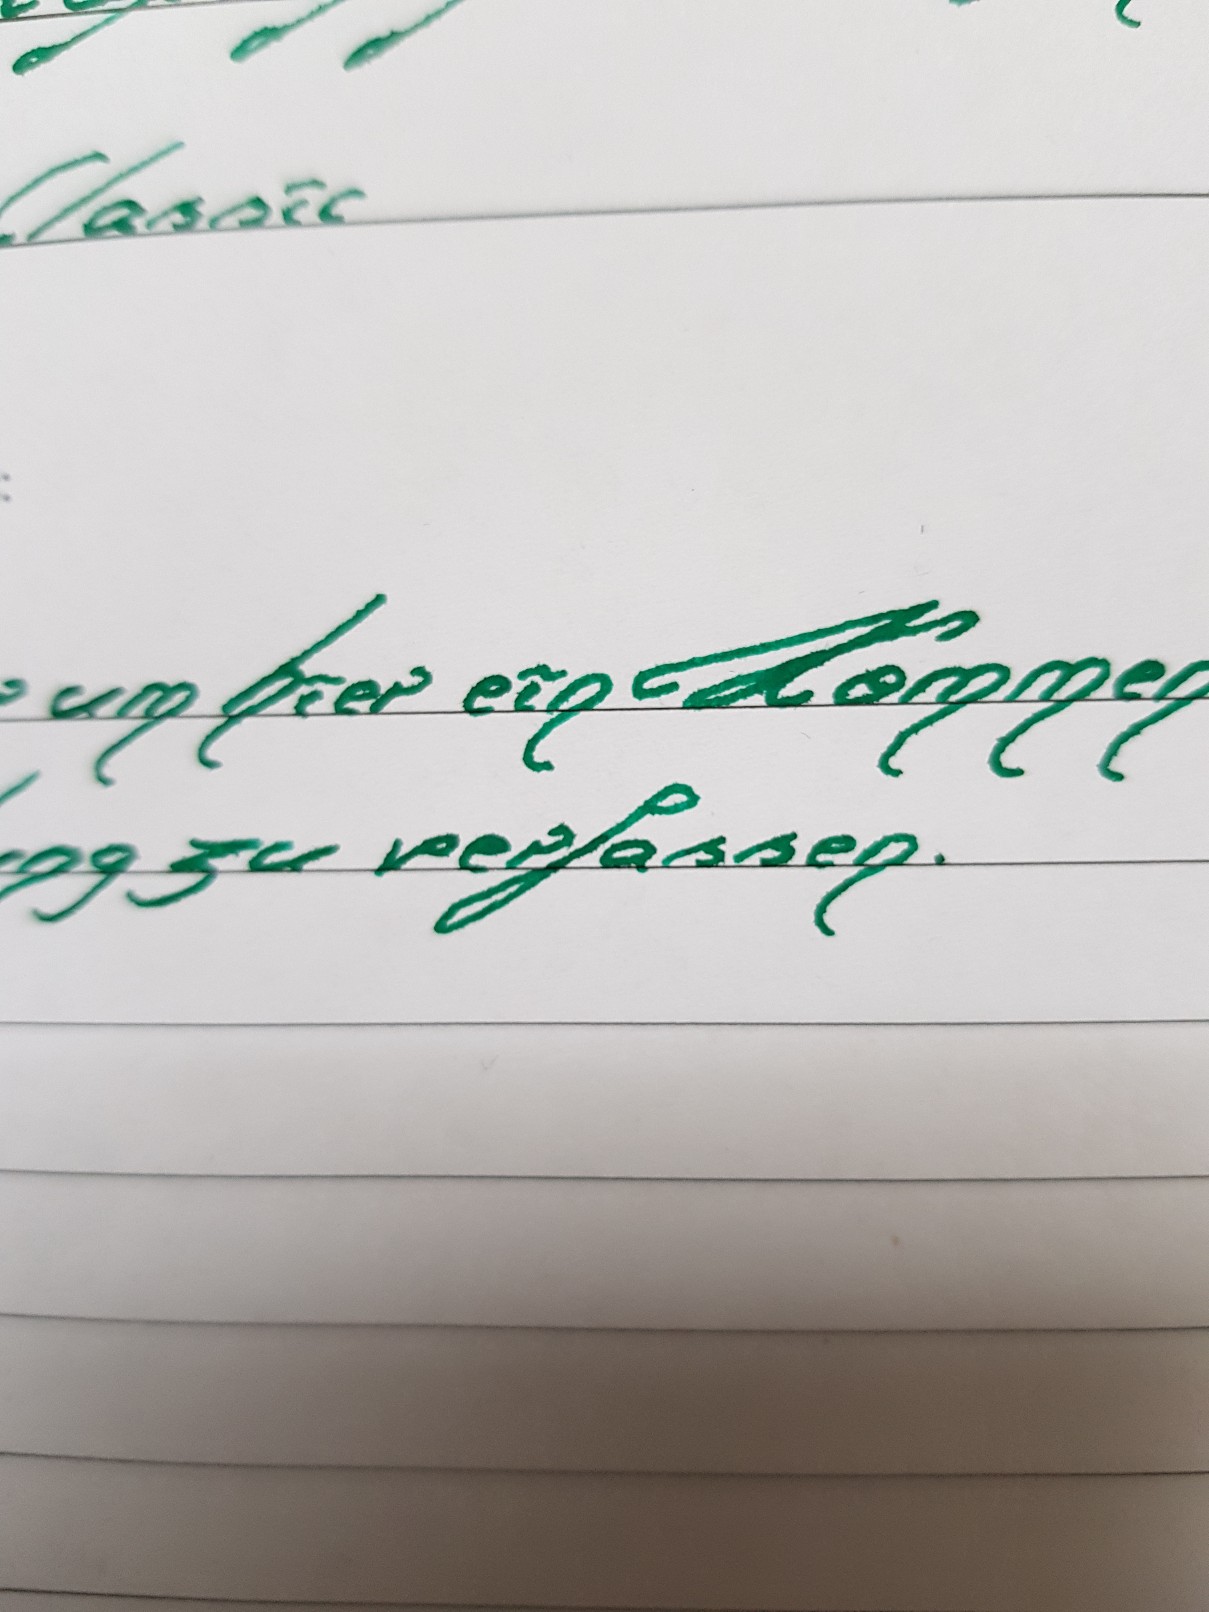 Classic
:
um hier ein Kommen
ung zu verfassen.